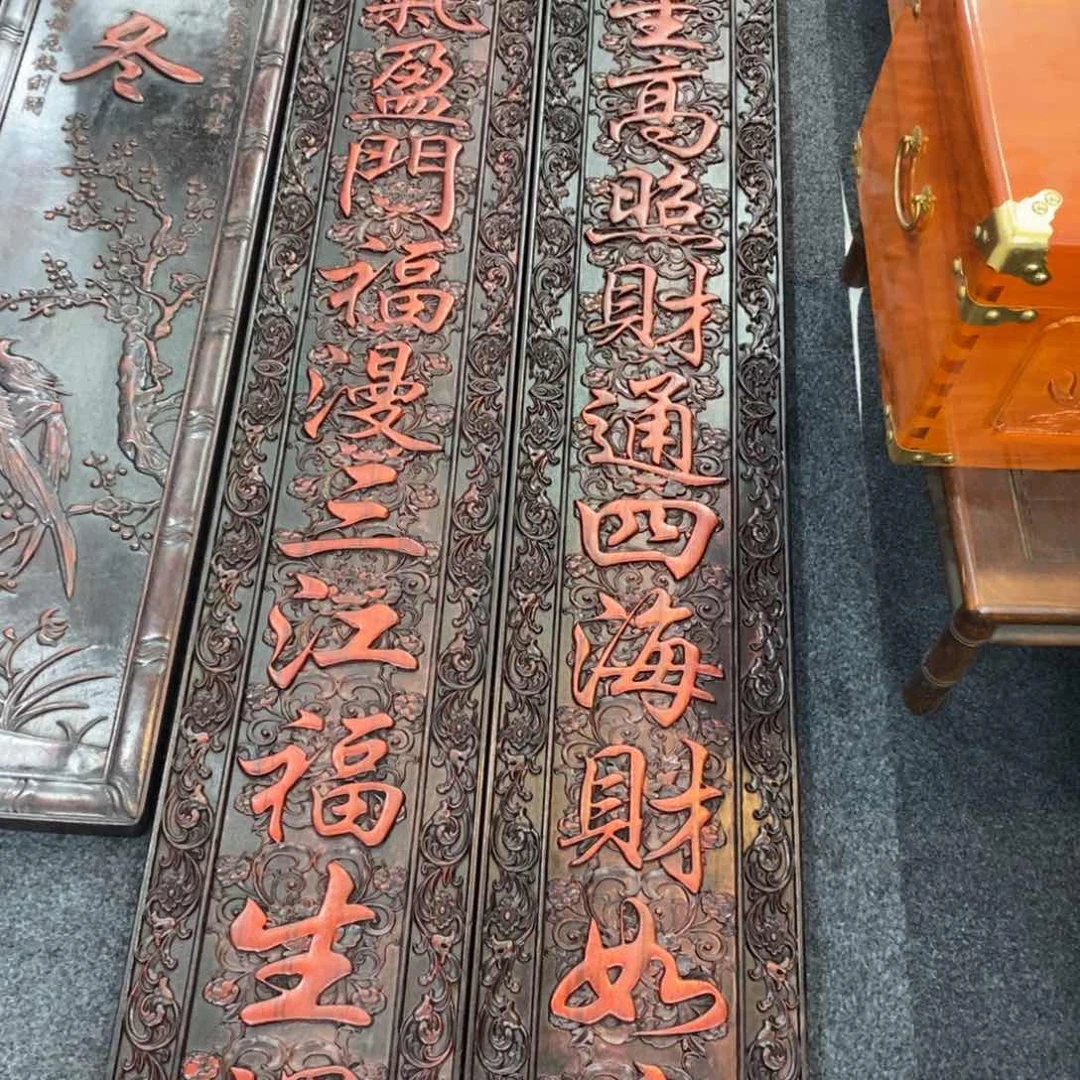 星高照財通四海財如
氣盈門福漫三江福生
冬